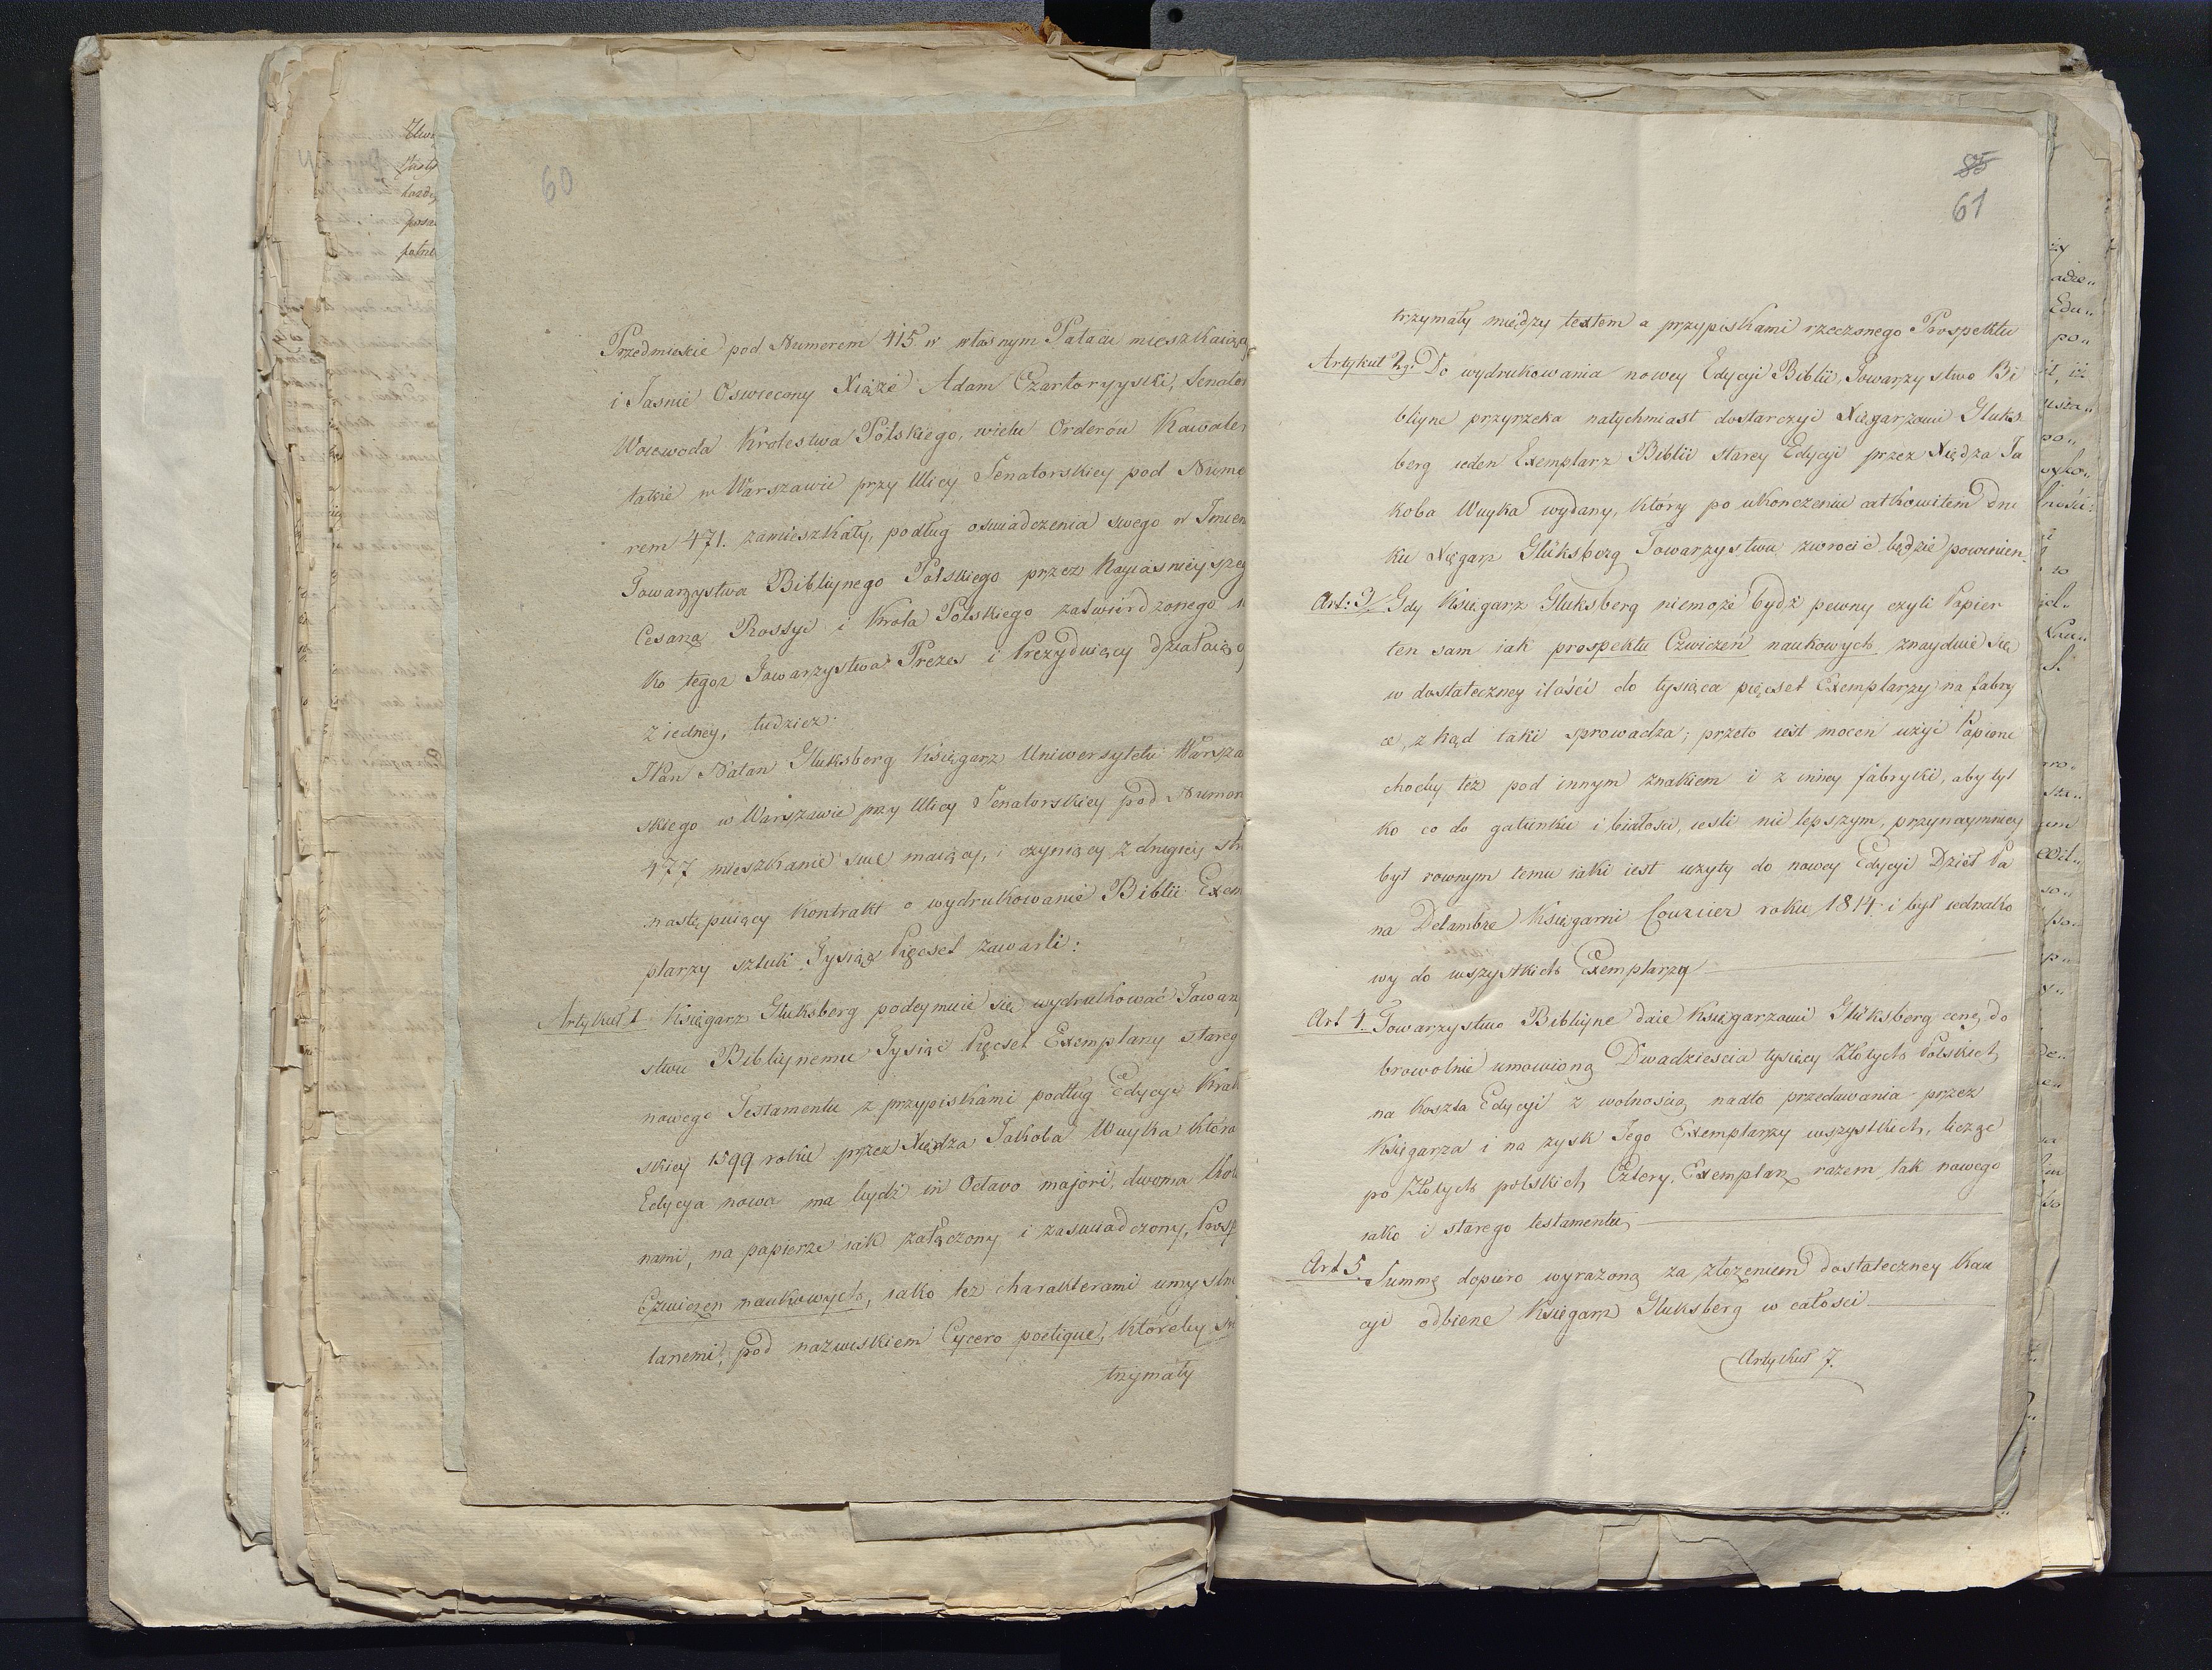 60
Przedmieście pod Numerem 415. w własnym Pałacu mieszkaiąc
i Jaśnie Oswiecony Xiąże Adam Czartoryyski, Senator
Woiewoda Krolestwa Polskiego, wielu Orderow Kawaler
także w Warszawie przy Ulicy Senatorskiey pod Nume
rem 471. zamieszkały, podług oswiadczenia swego w Imien
Towarzystwa Bibliynego Polskiego przez Nayiasnieyszeg
Cesarza Rossyi i Krola Polskiego zatwierdzonego
ko tegoz Towarzystwa Prezes i Prezyduiący działaiąc
z iedney, tudziez
JPan Natan Gluksberg Księgarz Uniwersytetu Warsza
skiego w Warszawie przy Ulicy Senatorskiey pod Numer
477 mieszkanie swe maiący, i czyniący z drugiey str
następuiący Kontrakt o wydrukowanie Biblii Exem
plarzy sztuk Tysiąc Pięcset zawarli:
Artykuł 1 Księgarz Gluksberg podeymuie się wydrukować Towarz
stwu Bibliynemu Tysiąc Pięcset Exemplarzy stareg
nowego Testamentu z przypiskami podług Edycyi Krak
skiey 1599 roku przez Xiędza Jakoba Wuyka która
Edycya nowa ma bydź in Octavo majori, dwoma Kolu
nami, na papierze iak załączony i zaswiadczony, Prosp
Czwiczen naukowych, iako tez charakterami umyslni
lanemi, pod nazwiskiem Cycero poetique, któreby
trzymały
85
61
trzymały między textem a przypiskami rzeczonego Prospektu
Artykuł 2gi Do wydrukowania nowey Edycyi Biblii, Towarzystwo Bi
bliyne przyrzeka natychmiast dostarczyć Xięgarzowi Gluks
berg ieden Exemplarz Biblii starey Edycyi przez Xiędza Ja
koba Wuyka wydany, który po ukonczeniu całkowitem dru
ku Xięgarz Glüksberg Towarzystwu zwrocić będzie powinien.
Art: 3/ Gdy Księgarz Gluksberg niemoże bydź pewny czyli Papier
ten sam iak prospektu Czwiczeń naukowych znayduie się
w dostateczney ilości do tysiąca pięcset Exemplarzy na fabry
ce, z kąd taki sprowadza; przeto iest mocen użyć Papieru
choćby też pod innym znakiem i z inney fabryki, aby tyl
ko co do gatunku i białości, iesli nie lepszym, przynaymniey
był rownym temu iaki iest użyty do nowey Edycyi Dzieł Pa
na Delambre Księgarni Courcier roku 1814 i był iednako
wy do wszystkich Exemplarzy
Art 4. Towarzystwo Bibliyne daie Księgarzowi Glüksberg cenę do
browolnie umowioną Dwadziescia tysięcy Złotych Polskich
na koszta Edycyi z wolnoscią nadto przedawania przez
Księgarza i na zysk Jego Exemplarzy wszystkich, licząc
po Złotych polskich Cztery, Exemplarz razem tak nowego
iako i starego testamentu
Art 5. Summę dopiero wyrażoną za złożeniem dostateczney Kau
cyi odbierze Księgarz Gluksberg w całosci
Artykuł 7.